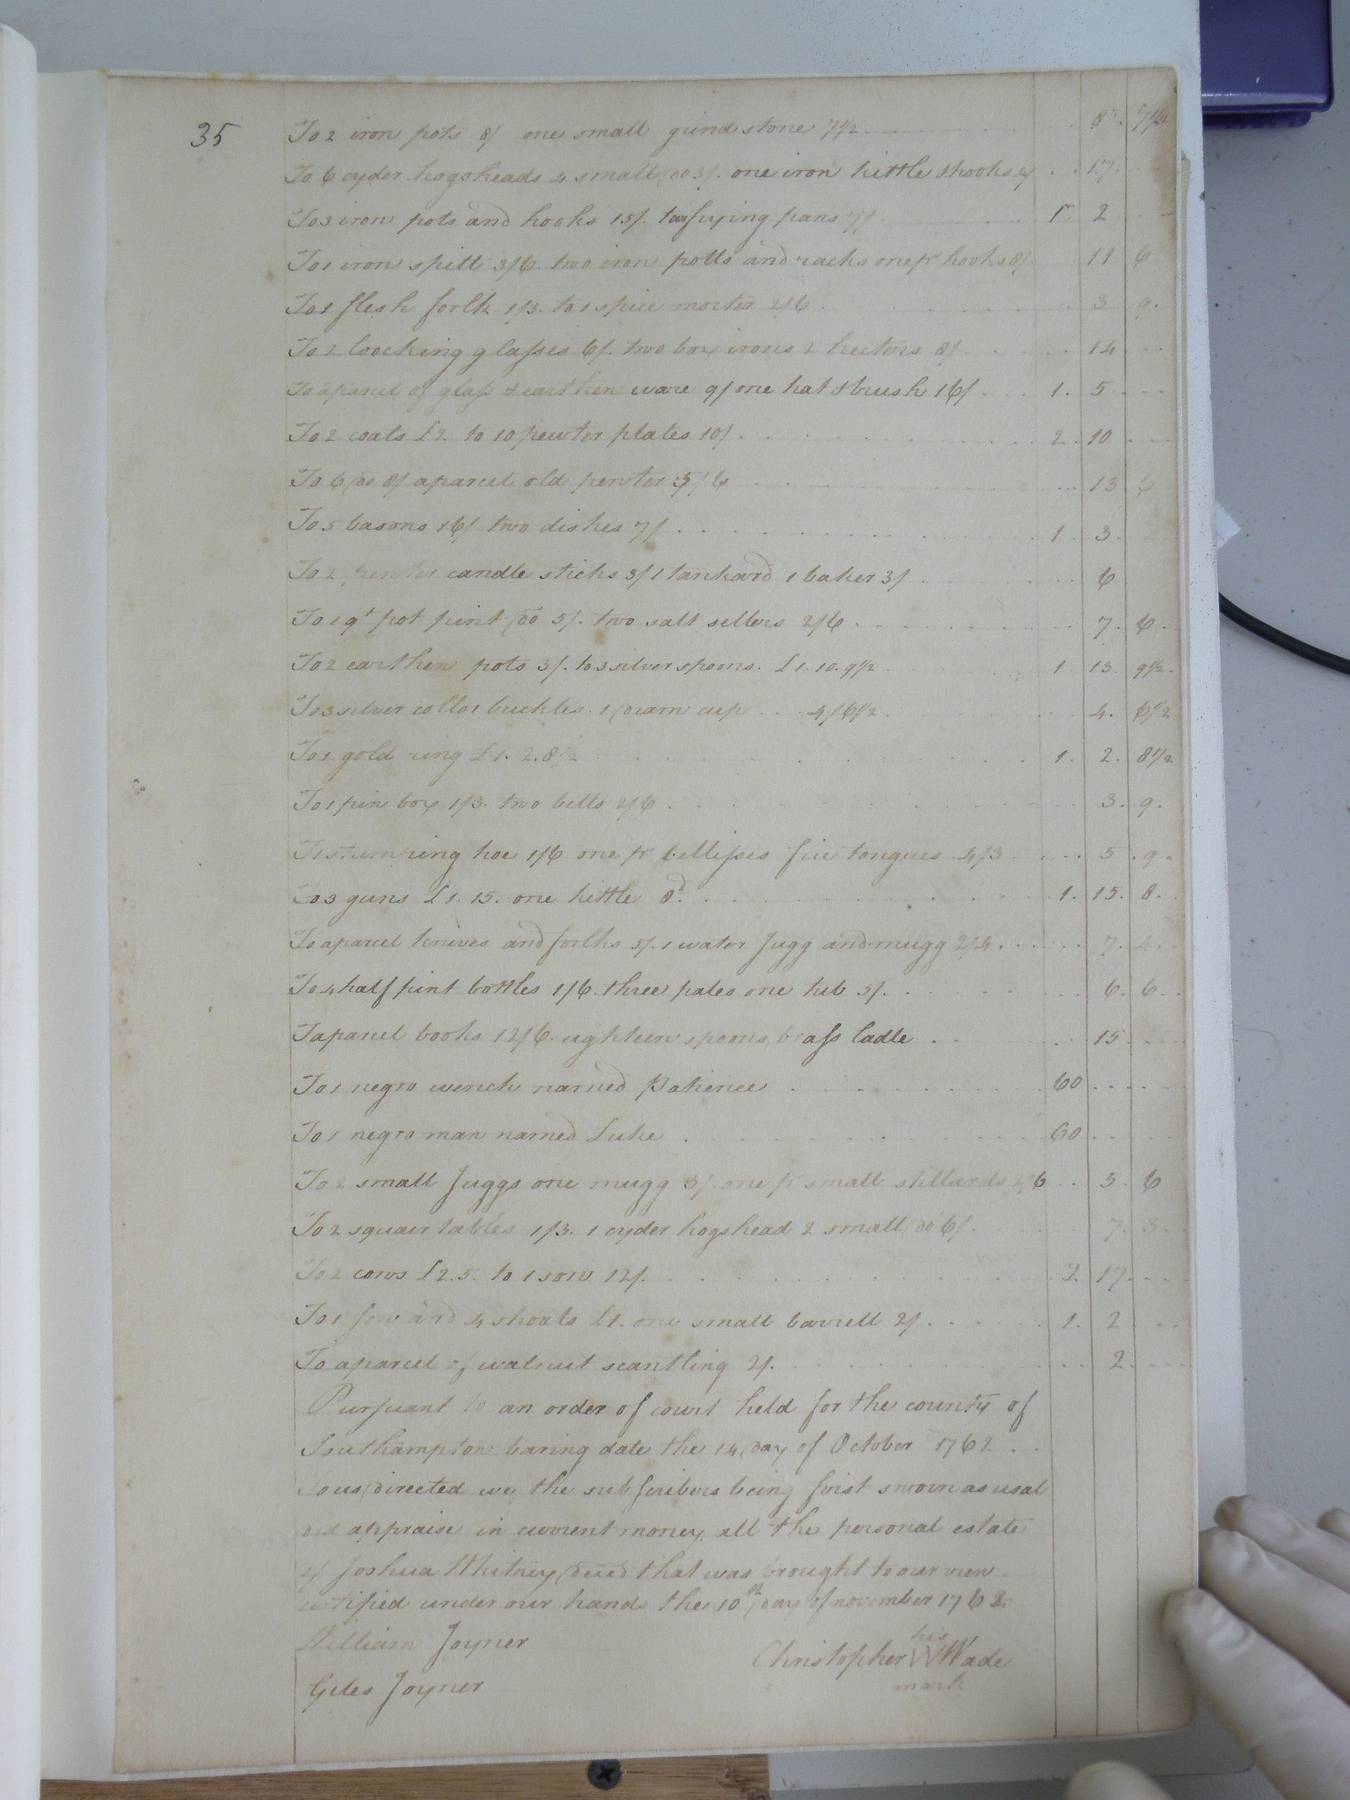 35
To 2 iron pots 8/ one small grind stone 7½ 8. 7½
To 6 cyder hogsheads 4 small do 3/. one iron kittle & hooks 17.
To 3 iron pots and hooks 15/. two frying pans 7/ 1. 2
To 1 iron spitt 3/6. two iron potts and racks one pr hooks 8/ 11 6
To 1 flesh forlk 1/3. to 1 spice morter 2/6 3 9.
To 2 loocking glasses 6/. two box irons 2 heeters 8/ 14
To aparcel of glass & earthen ware 9/ one hat & brush 16/ 1. 5
To 2 coats £2 to 10 pewter plates 10/ 2. 10
To 6 do 8/ aparcel old pewter 5/6 13 6
To 5 basons 16/ two dishes 7/ 1 3.
To 2 pewter candle sticks 3/ 1 tankard 1 baker 3/ 6
To 1 qt pot pint do 5/. two salt sellers 2/6 7. 6.
To 2 earthen pots 3/. to 3 silver spoons. £1.10.9½ 1. 13. 9½
To 3 silver coller buckles. 1 dram cup 4/6½ 4. 6½
To 1 gold ring £1. 2. 8½ 1. 2. 8½
To 1 pin box 1/3. two bells 2/6. 3. 9.
To 1 stumping hoe 1/6 one pr bellisses fire tongues 4/3 5. 9.
To 3 guns £1. 15. one kittle 8d. 1. 15. 8.
To aparcel knives and forlks 5/. 1 water Jugg and mugg 2/4. 7. 4.
To 4 half pint bottles 1/6. three pales one tub 5/. 6. 6.
To aparcel books 12/6. eighteen spoons, brass ladle 15
To 1 negro wench named Patience 60
To 1 negro man named Luke 60
To 2 small Juggs one mugg 3/. one pr small stillards 2/6 5. 6
To 2 squair tables 1/3. 1 cyder hogshead 2 small do 6/. 7. 3.
To 2 cows £2.5. to 1 sow 12/. 2. 17.
To 1 sow and 4 shoats £1. one small barrell 2/. 1. 2
To aparcel of walnut scantling 2/. 2.
Pursuant to an order of court held for the county of
Southampton baring date the 14 day of October 1762
To us directed we the subscribers being first sworn as usal
did appraise in current money all the personal estate
of Joshua Whitney decd that was brought to our view
certified under our hands the 10th day of november 1762.
William Joyner
his
Christopher W Wade
mark
Giles Joyner